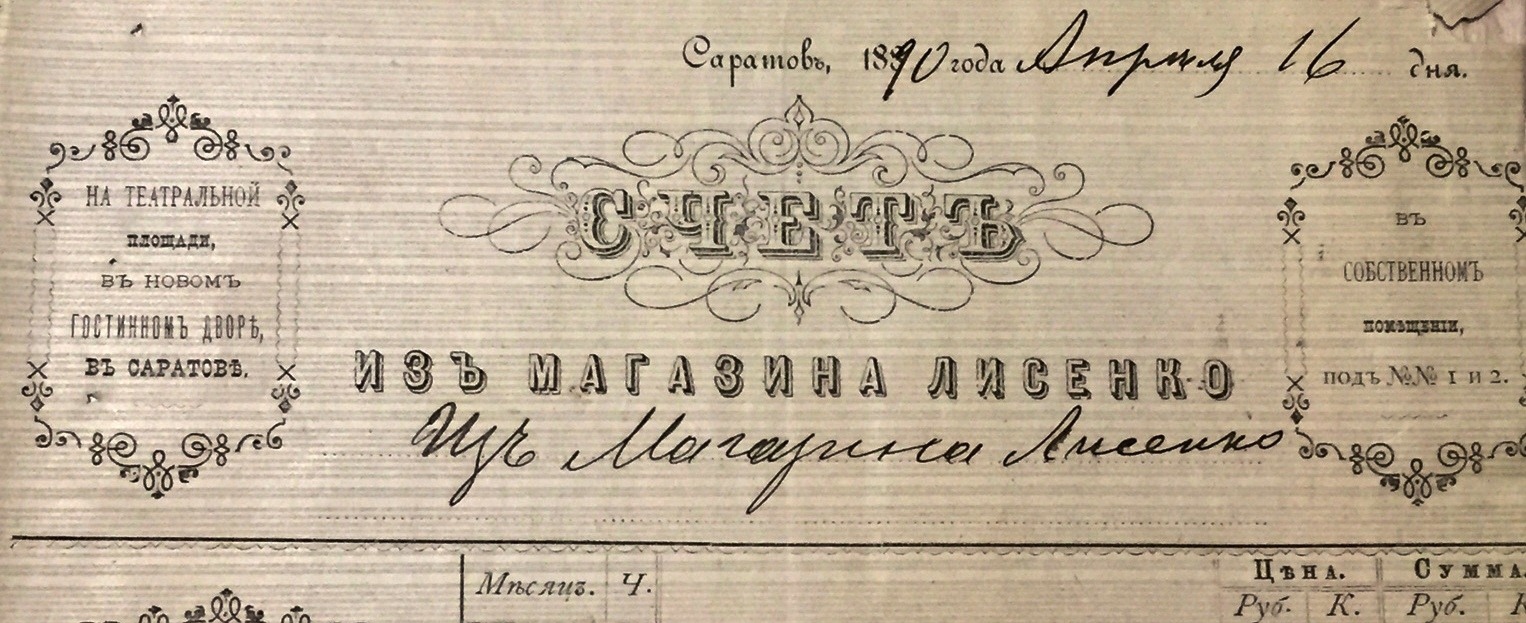 Саратовъ, 1890 года Апреля 16 дня.
НА ТЕАТРАЛЬНОЙ
ПЛОЩАДИ,
ВЪ НОВОМЪ
ГОСТИННОМЪ ДВОРѢ,
ВЪ САРАТОВѢ.
СЧЕТЪ
ИЗЪ МАГАЗИНА ЛИСЕНКО
Изъ Магазина Лисенко
ВЪ
СОБСТВЕННОМЪ
ПОМѢЩЕНІИ,
ПОДЪ №№ 1 И 2.
Мѣсяцъ. Ч. Цѣна. Сумма.
Руб. К. Руб. К